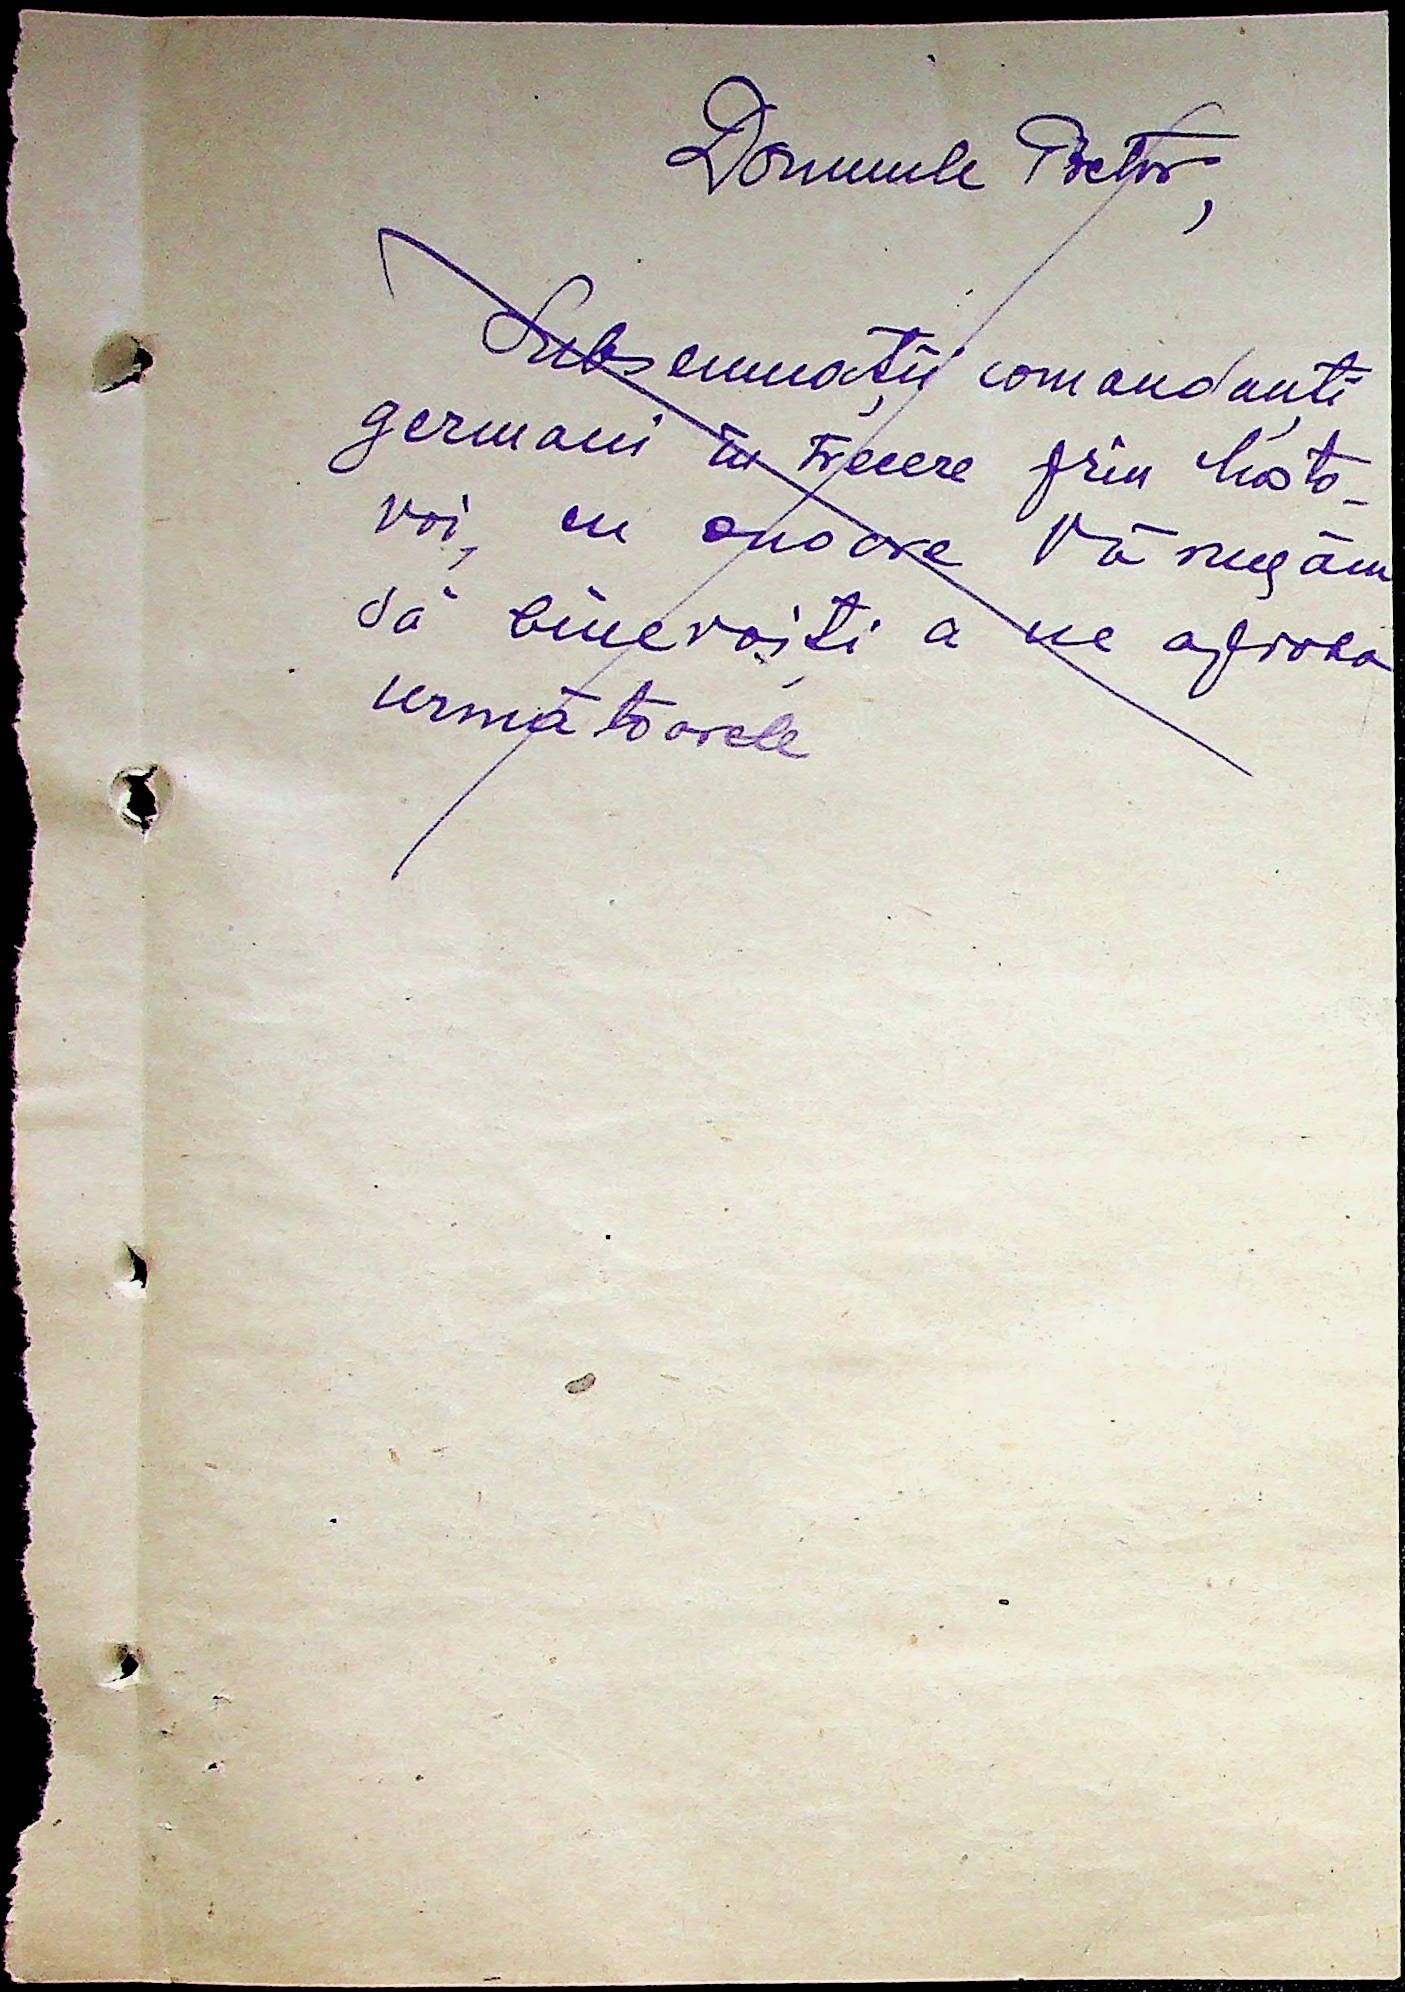 Domnule Pretor,
Subsemnații comandanți
germani în trecere prin Mosto-
voi, cu onoare Vă rugăm
să binevoiți a ne aproba
următoarele